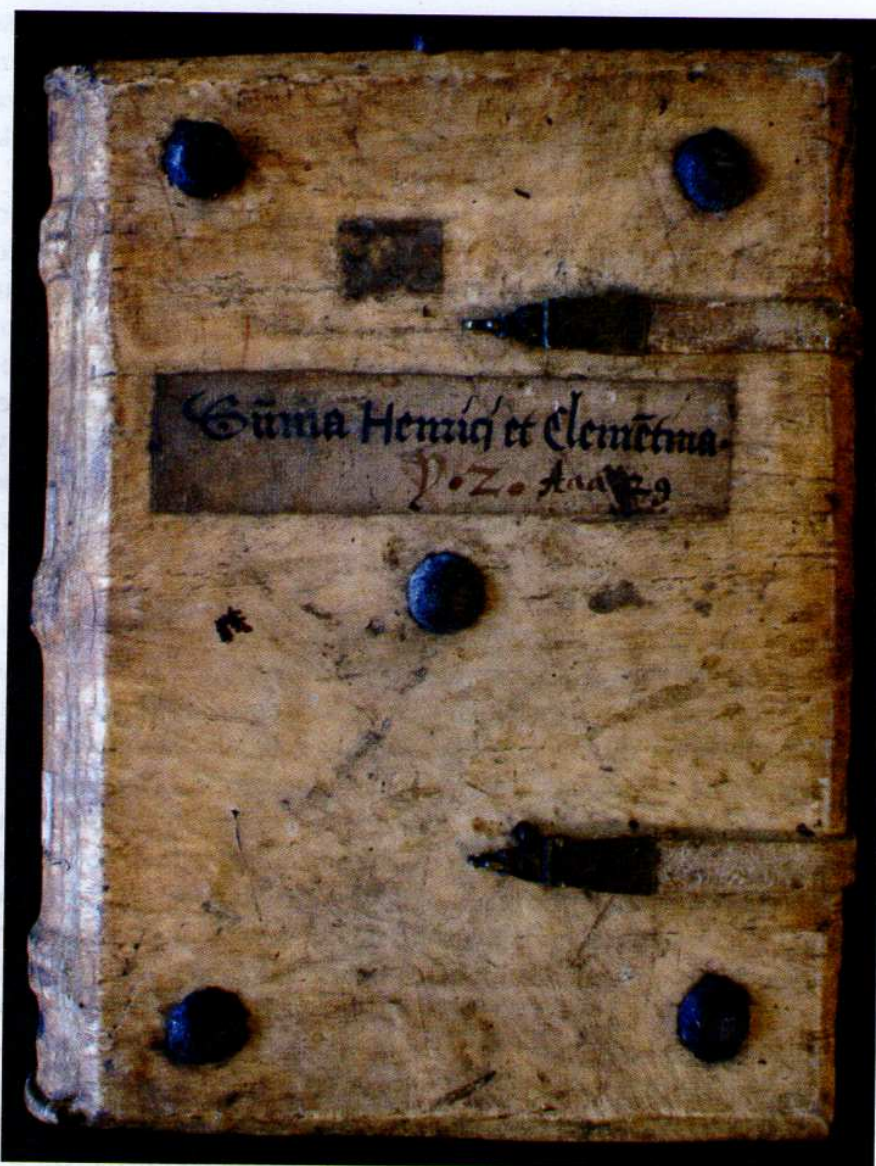 Sūma Henrici et Clemētina.
y.z. Aaa 29